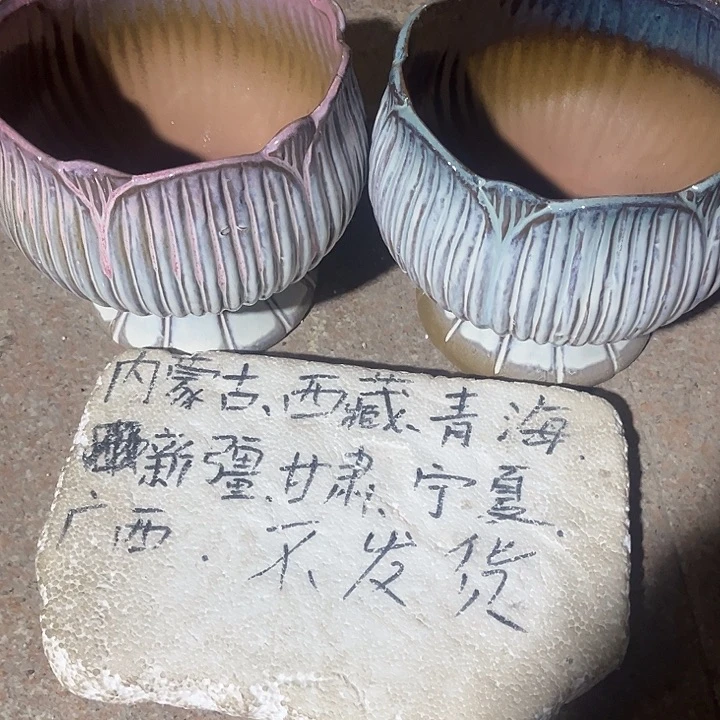 内蒙古、西藏、青海
新疆、甘肃、宁夏、
广西.不发货